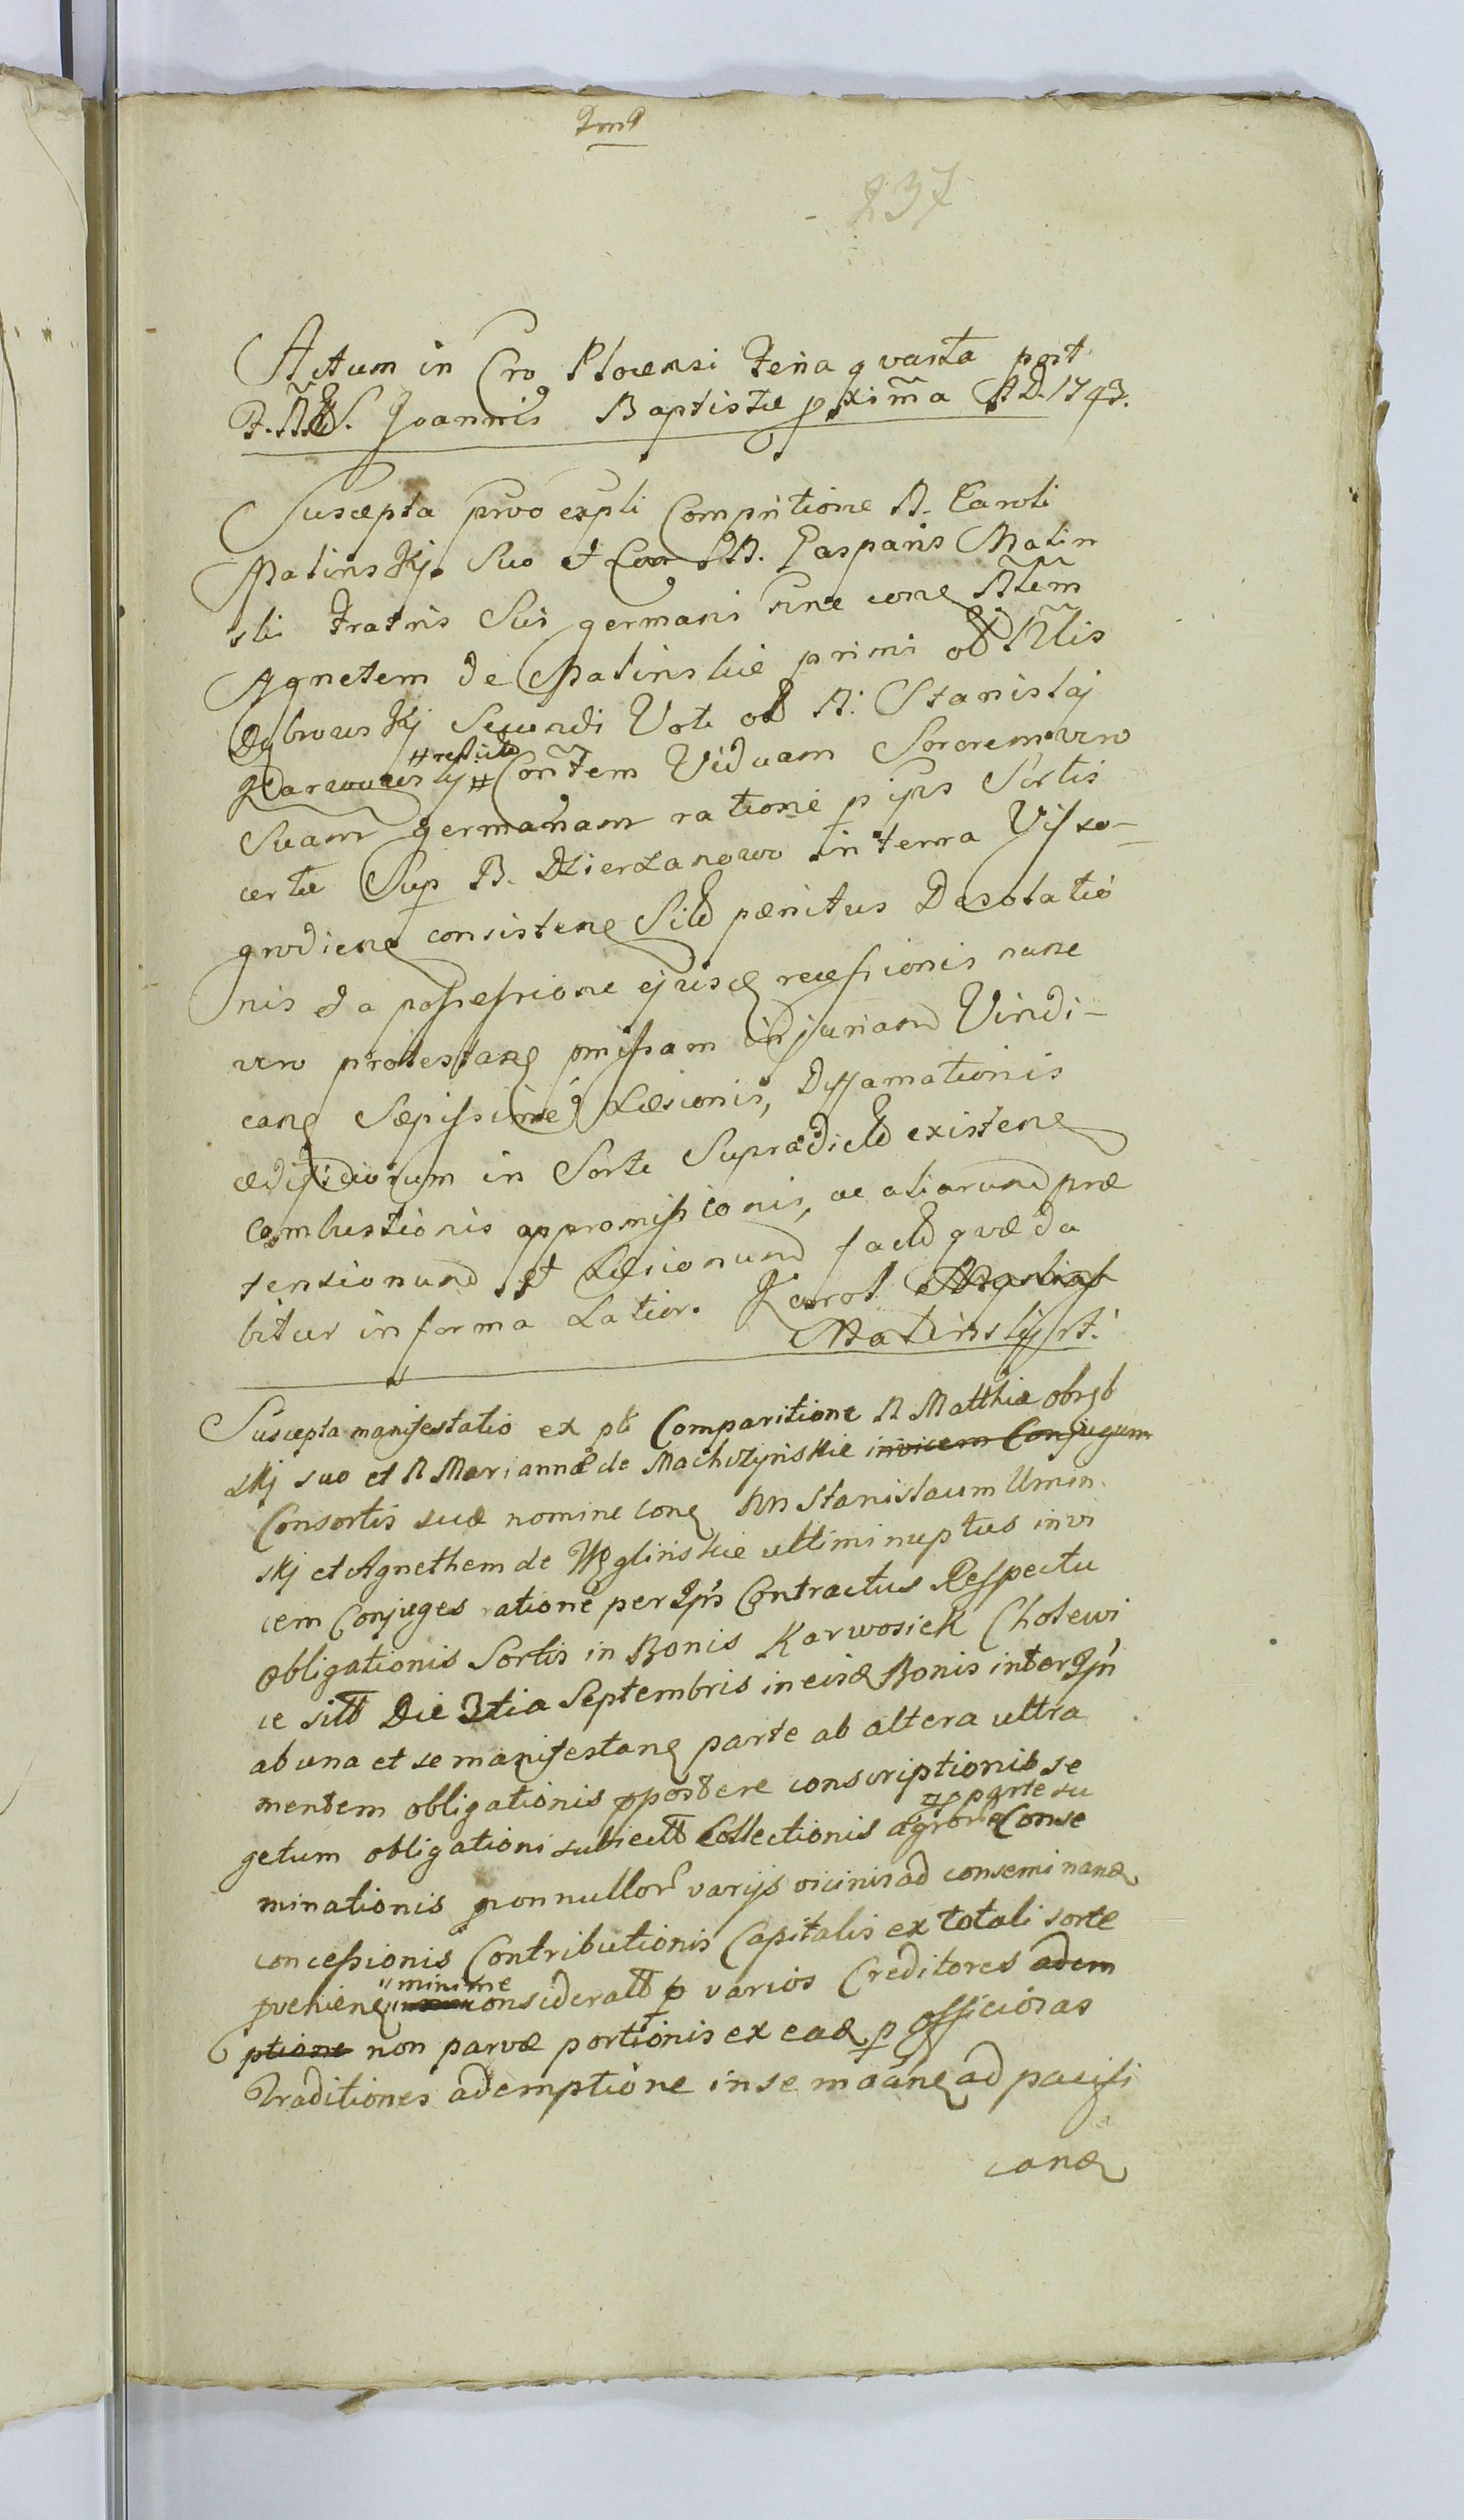 237
Actum in Cro Plocensi Feria qvarta post
F. N. S. Joannis Baptistæ pxima AD. 1743.
Suscepta prvo expli Compritione N. Caroli
Malinskj Suo et N. Casparis Malin
ski Fratris Sui germani nne conq Nlem
Agnetem de Malinskie primi ol Nlis
Dąbrowskj Secundi Voti ol N. Stanislaj
#relicta
Karwowskj # Contem Viduam Sororem vero
Suam germanam ratione p ips Sortis
certæ Sup B. Dzierzanowo in terra Visso-
grodienq consistenq Sitt pænitus Desolatio
nis et a possessione ejusq recessionis nunc
vero protestanq pmissam injuriam Vindi-
canq Sæpissime Læsionis, Diffamationis
ædificiorum in Sorte Supradictt existenq
Combustionis appromissionis, ac aliarumq præ
tensionumq et Læsionumq factt qvæ da
bitur in forma Latior. Karol
Malinskj mp.
Suscepta manifestatio ex pli Comparitione N Matthiæ Obręb
skj suo et N Mariannæ de Machczynskie invicem Conjugum
Consortis suæ nomine conq NN Stanislaum Umin
skj et Agnethem de Węglinskie ultimi nuptus invi
cem Conjuges ratione per Ips Contractus Respectu
obligationis Sortis in Bonis Karwosiek Cholewi
ce sitt Die 3tia Septembris in eisd Bonis inter Ips
ab una et se manifestanq parte ab altera ultra
mentem obligationis ppostere conscriptionis se
p parte su
getum obligationi subiectt Collectionis agror Conse
minationis nonnullor varijs vicinis ad conseminanq
concessionis Contributionis Capitalis ex totali sorte
minime
pvenienq consideratt p varios Creditores adem
ptione non parvæ portionis ex ead p officiosas
Traditiones ademptione in se maanq ad pacifi
canq